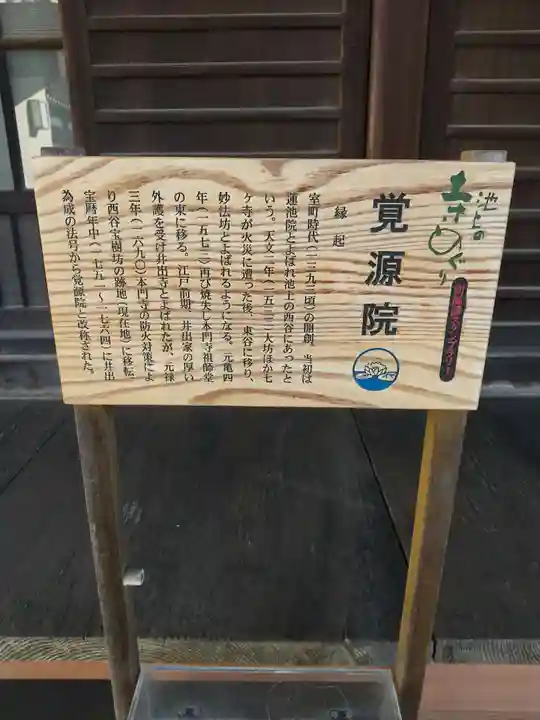 池上の
寺めぐり
覚源院
縁起
室町時代(一三九三頃)の開創、当初は
蓮池院とよばれ池上の西谷にあったと
いう。天文二年(一五三三)大坊ほか七
ヶ寺が火災に遭った後、東谷に移り、
妙法坊とよばれるようになる。元亀四
年(一五七三)再び焼失し本門寺祖師堂
の東に移る。江戸前期、井出家の厚い
外護を受け井出寺とよばれたが、元禄
三年(一六九〇)本門寺の防火対策によ
り西谷玉樹坊の跡地(現在地)に移転、
宝暦年中(一七五一~一七六四)に井出
為成の法号から覚源院と改称された。